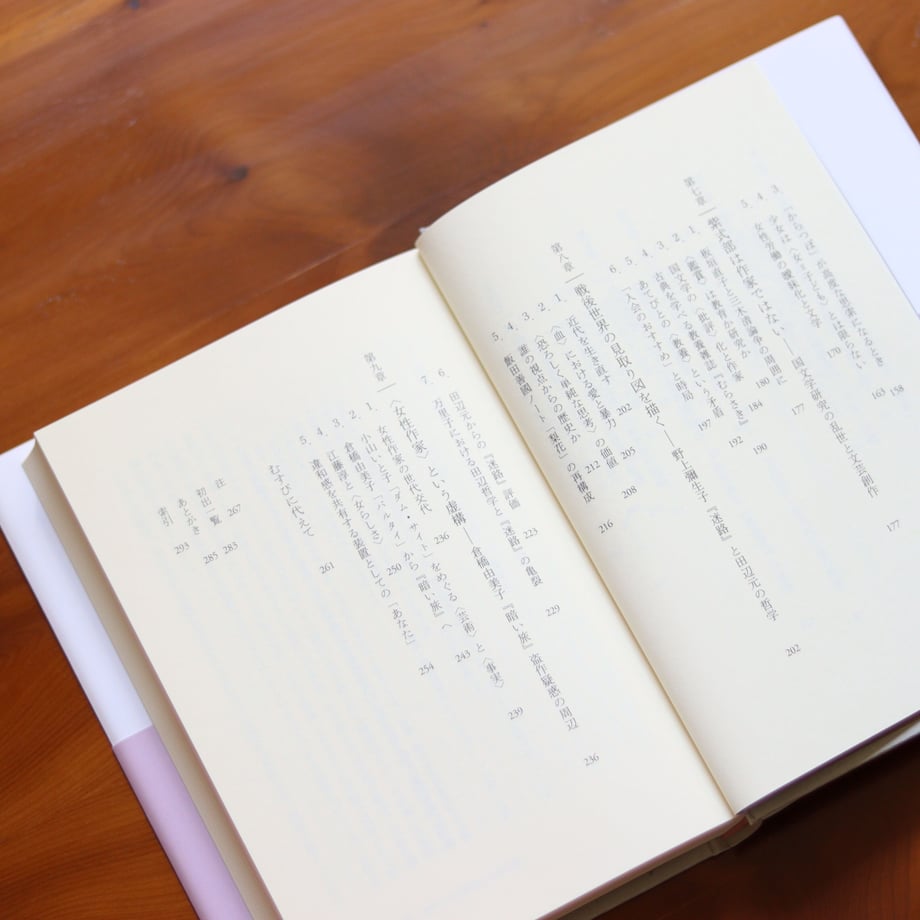 3. 『からっぽ』が高度な思索になるとき 158
4. 少女は〈女＝こども〉とは限らない 163
5. 女性労働の曖昧化と文学 170
第七章――紫式部は作家ではない――国文学研究の乱世と文芸創作 177
1. 板垣直子と三木清論争の周囲に 177
2. 〈鑑賞〉は教育か研究か 180
3. 国文学の〈批評〉化と作家 184
4. 古典を学べる教養雑誌『むらさき』 190
5. あてびとの〈教養〉と時局 192
6. 「入会のおすすめ」という話術 197
第八章――戦後世界の見取り図を描く――野上彌生子『迷路』と田辺元の哲学 202
1. 近代を生き直す 202
2. 〈血〉における愛と暴力の価値 205
3. 〈恐ろしく単純な思考〉 208
4. 誰の視点からの歴史か 212
5. 飯田善國ノート「梨花」の再構成 216
6. 田辺元からの『迷路』評価 223
7. 万里子における田辺哲学と『迷路』の亀裂 229
第九章――〈女性作家〉という虚構――倉橋由美子『暗い旅』盗作疑惑の周辺 236
1. 女性作家の世代交代 236
2. 小山いと子「ダム・サイト」をめぐる〈芸術〉と〈事実〉 239
3. 倉橋由美子「パルタイ」から『暗い旅』へ 243
4. 江藤淳と〈女らしさ〉 250
5. 違和感を共有する装置としての「あなた」 254
むすびに代えて 261
註 267
初出一覧 283
あとがき 285
索引 293